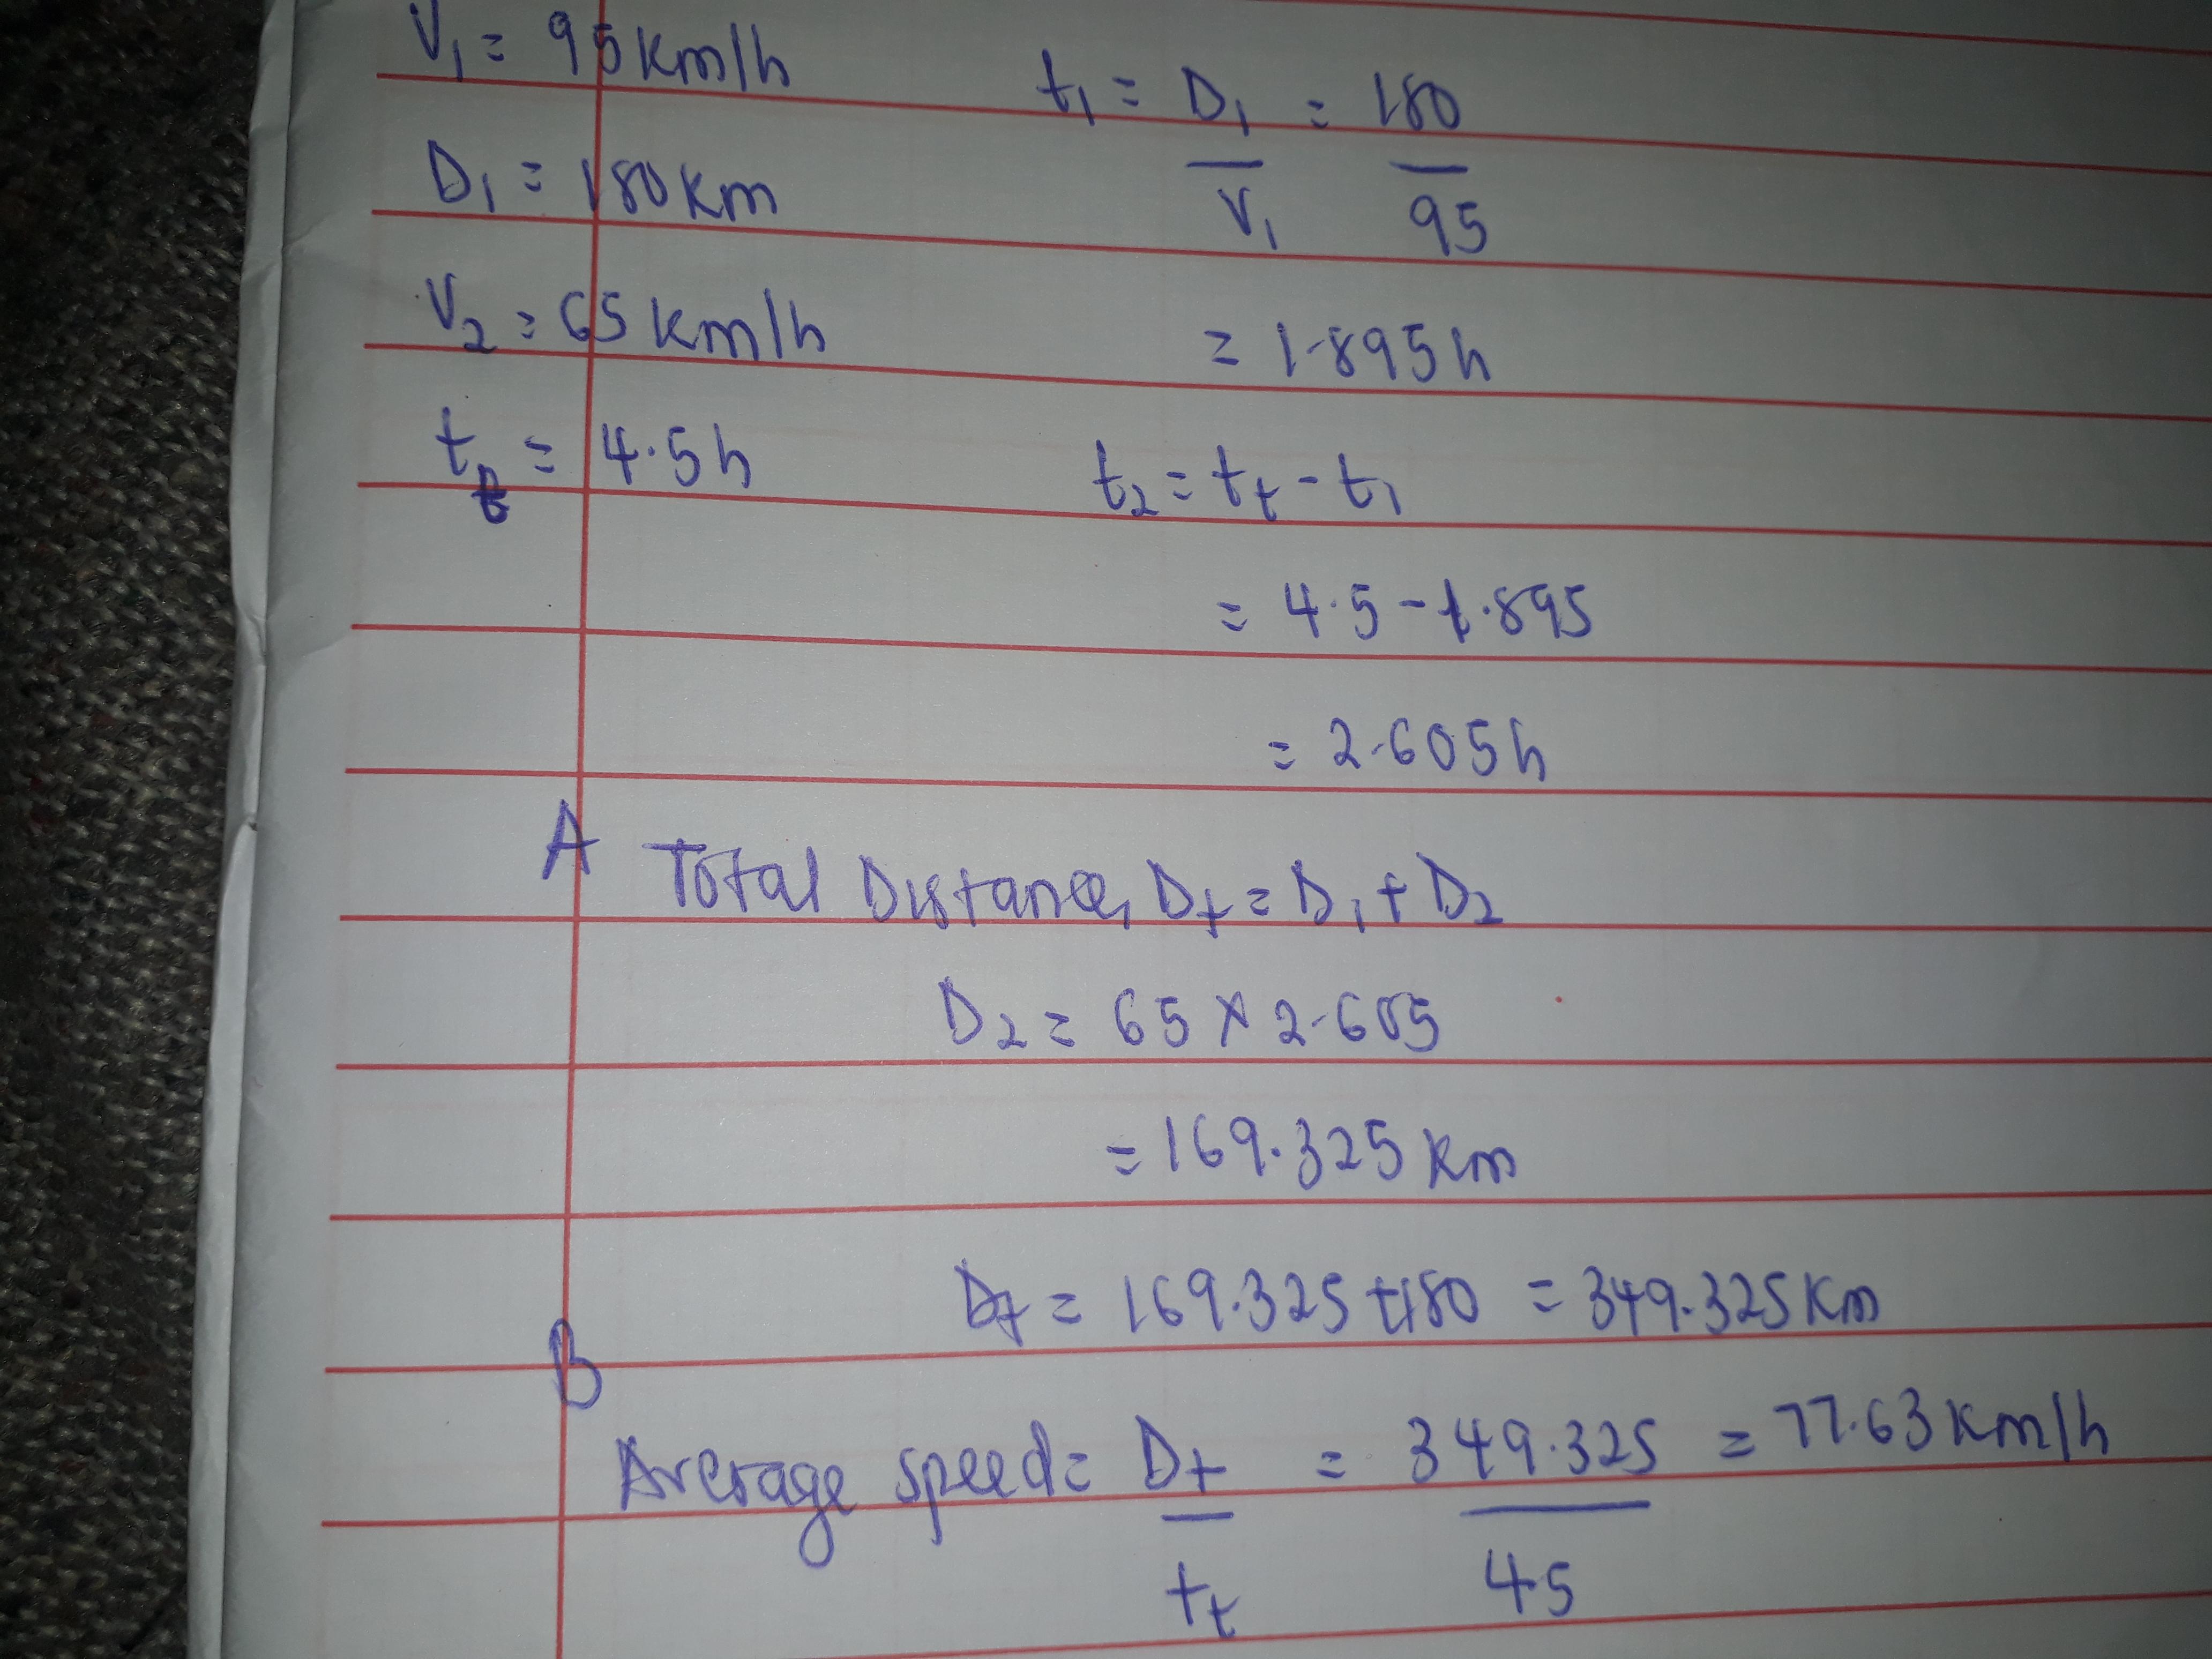 V₁ = 95 km/h
D₁ = 180 km
V₂ = 65 km/h
tₜ = 4.5 h
t₁ = D₁/V₁ = 180/95
= 1.895 h
t₂ = tₜ - t₁
= 4.5 - 1.895
= 2.605 h
A Total Distance, Dₜ = D₁ + D₂
D₂ = 65 × 2.605
= 169.325 km
Dₜ = 169.325 + 180 = 349.325 Km
B
Average speed = Dₜ/tₜ = 349.325/4.5 = 77.63 km/h